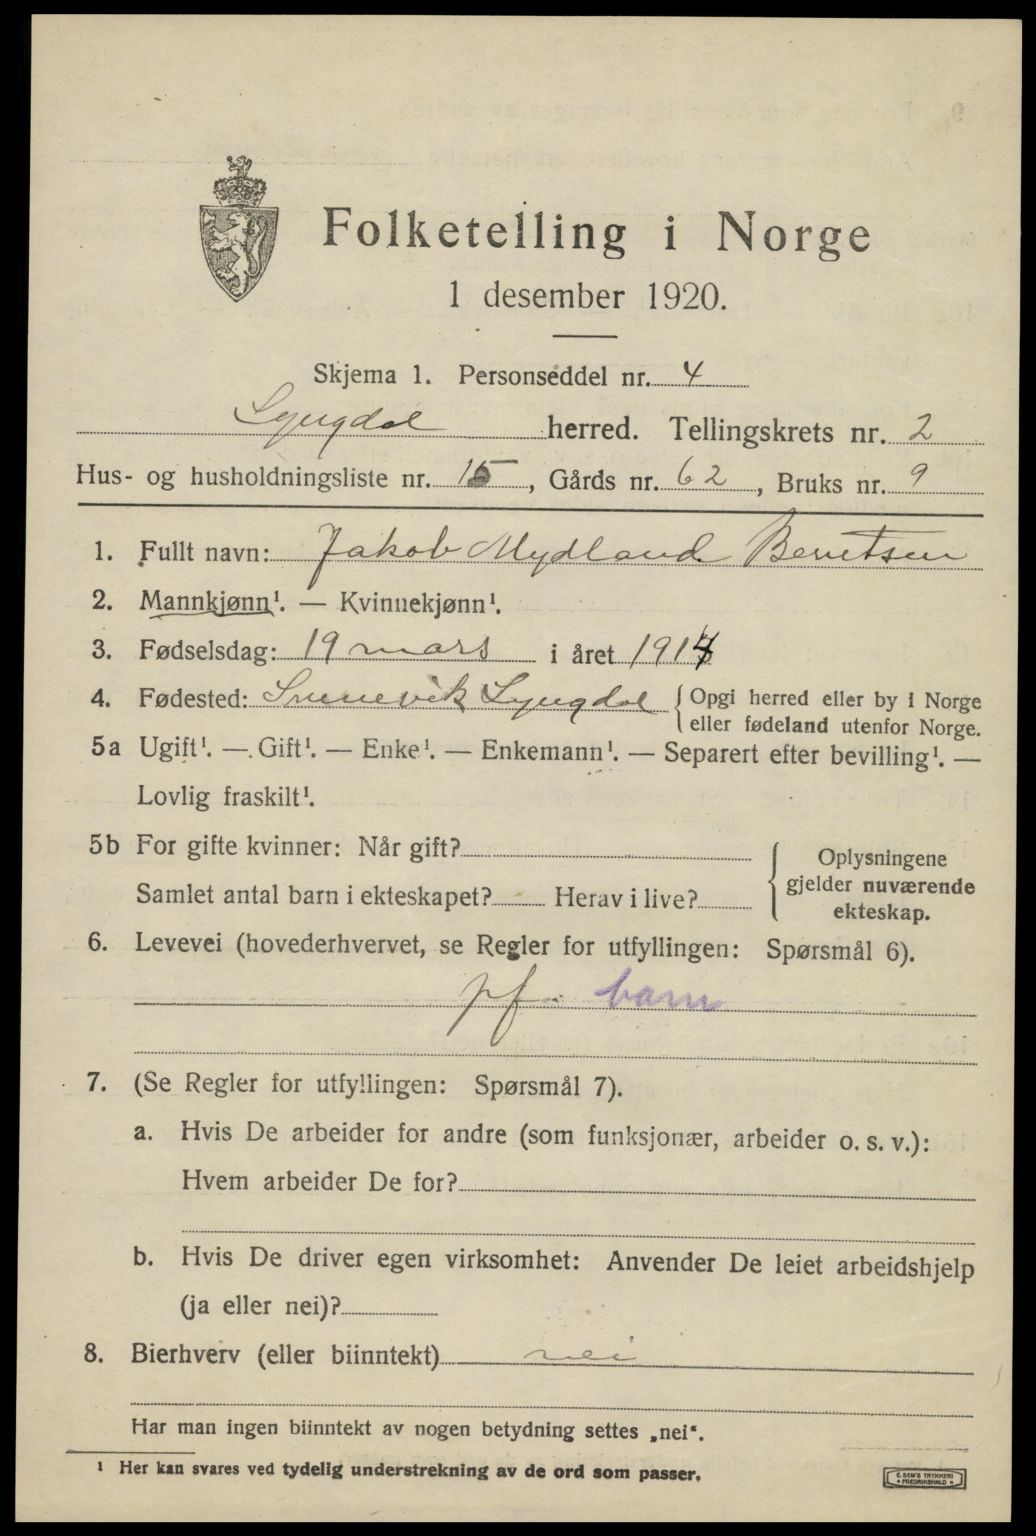 Folketelling i Norge
1 desember 1920.
Skjema 1. Personseddel nr. 4
Lyngdal herred. Tellingskrets nr. 2
Hus- og husholdningsliste nr. 15, Gårds nr. 62, Bruks nr. 9
1. Fullt navn: Jakob Mydland Berntsen
2. Mannkjønn¹. — Kvinnekjønn¹.
3. Fødselsdag: 19 mars i året 1914
4. Fødested: Svenevik Lyngdal { Opgi herred eller by i Norge
eller fødeland utenfor Norge.
5a Ugift¹. — Gift¹. — Enke¹. — Enkemann¹. — Separert efter bevilling¹. —
Lovlig fraskilt¹.
5b For gifte kvinner: Når gift?
Samlet antal barn i ekteskapet? Herav i live?
{ Oplysningene
gjelder nuværende
ekteskap.
6. Levevei (hovederhvervet, se Regler for utfyllingen: Spørsmål 6).
pf. barn
7. (Se Regler for utfyllingen: Spørsmål 7).
a. Hvis De arbeider for andre (som funksjonær, arbeider o. s. v.):
Hvem arbeider De for?
b. Hvis De driver egen virksomhet: Anvender De leiet arbeidshjelp
(ja eller nei)?
8. Bierhverv (eller biinntekt) nei
Har man ingen biinntekt av nogen betydning settes „nei“.
¹ Her kan svares ved tydelig understrekning av de ord som passer.
E. SEM'S TRYKKERI
• FREDRIKSHALD •